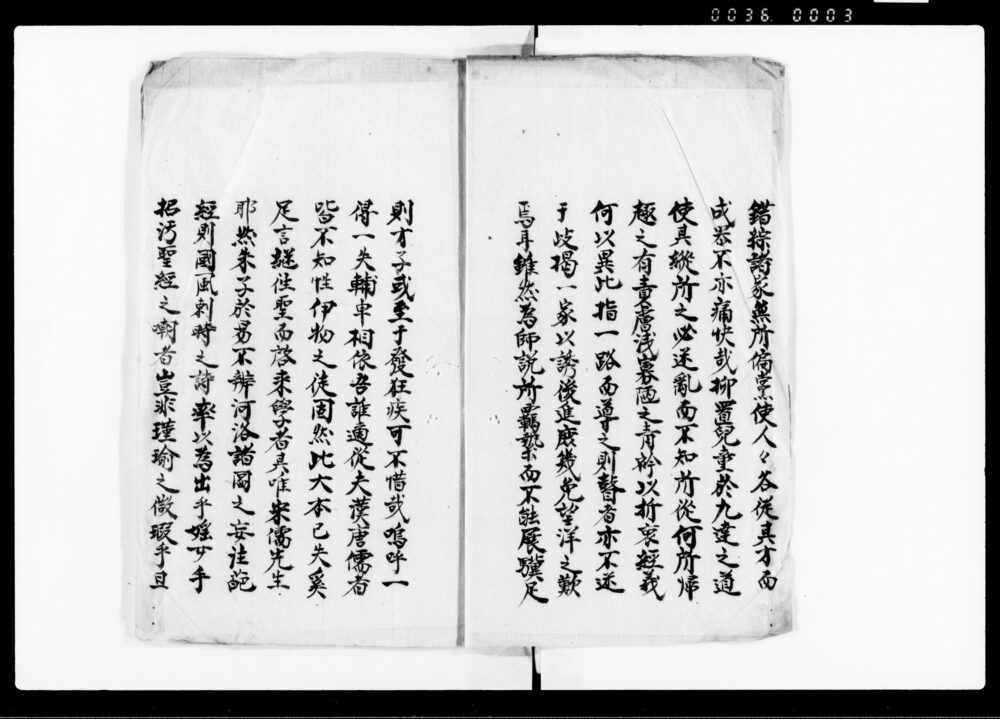 0036. 0003
錯綜諸家無所偏黨使人々各従其才而
成器不亦痛快哉抑置兒童於九達之道
使其縱所之必迷亂而不知所從何所帰
極之有責膚浅寡陋之青衿以折衷経義
何以異此指一路而導之則瞽者亦不迷
于岐揭一家以誘後進庶幾免望洋之歎
焉耳雖然為師説所羈縶而不能展驥足
則才子或至于發狂疾可不惜哉嗚呼一
得一失輔車相依吾誰適從夫漢唐儒者
皆不知性伊物之徒固然此大本已失奚
足言継往聖而啓来學者其唯宋儒先生
耶然朱子於易不辨河洛諸図之妄詿詑
経則國風刺時之詩率以為出乎婬女手
招汚聖経之嘲者豈非瑾瑜之微瑕乎且